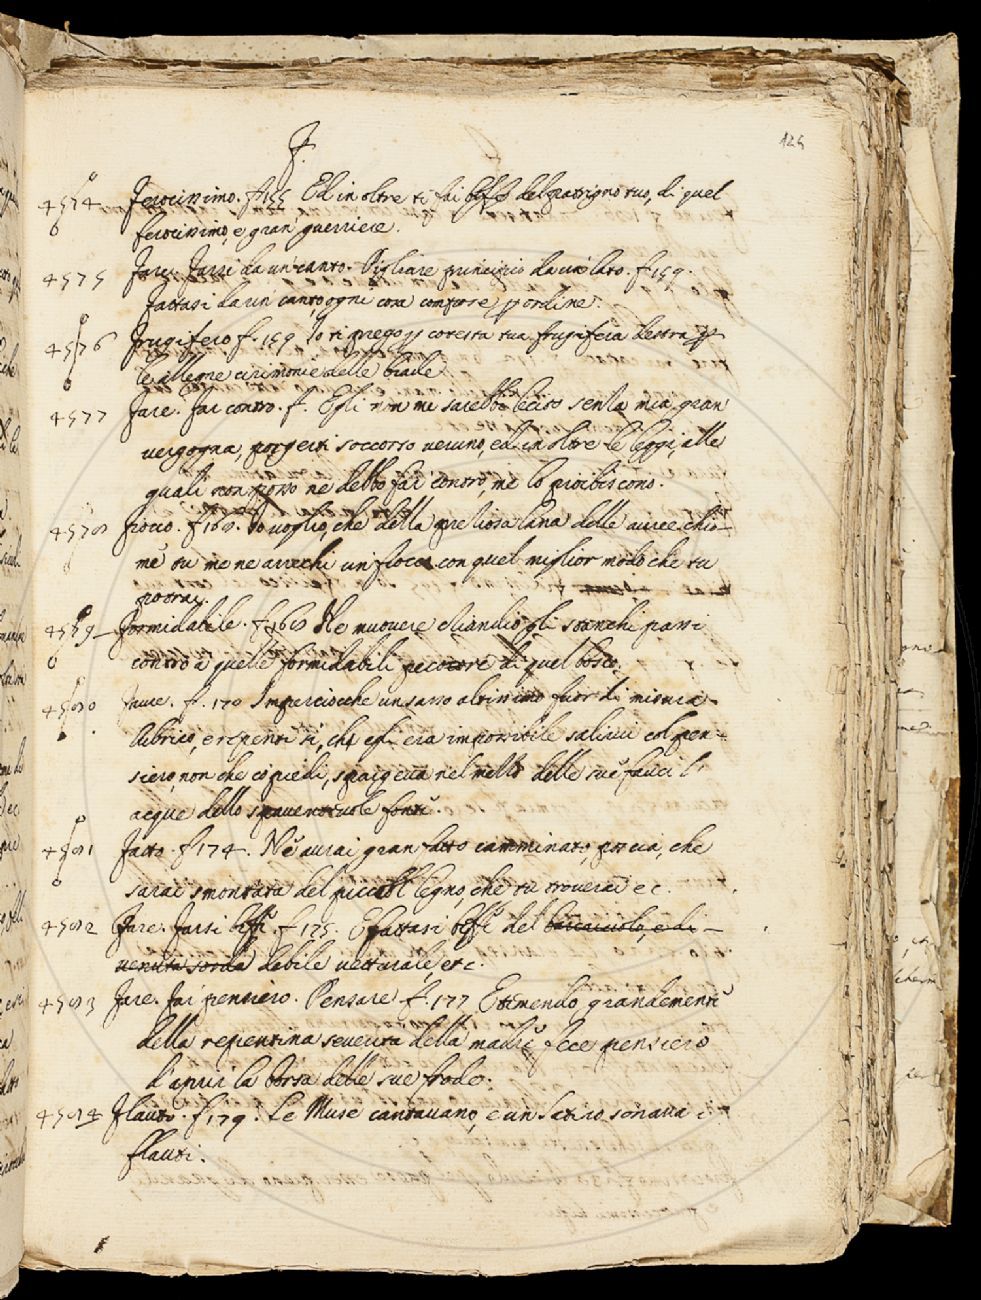 F.
124
4574 Ferocissimo. f. 155 Ed in oltre ti fai beffe del patrigno tuo, di quel
ferocissimo, e gran guerriere.
4575 Fare. Farsi da un canto. Pigliare principio da un lato. f. 159.
fattasi da un canto, ogni cosa compose p ordine.
4576 Frugifero f. 159 Io ti prego p cotesta tua frugifera destra p
le allegre cirimonie delle biade
4577 Fare. Far contro. f. Egli non me sarebbe lecito senza mia gran
vergogna, porgerti soccorso veruno, ed in oltre le leggi, alle
quali non posso ne debbo far contro, me lo proibiscono.
4578 Fiocco. f. 160. Io voglio, che della preziosa lana delle auree chio-
me tu me ne arrechi un fiocco con quel miglior modo che tu
potrai.
4579 Formidabile. f. 160 Ne muovere eziandio gli stanchi passi
contro a quelle formidabili pecore di quel bosco.
4580 Fauce. f. 170 Imperciocche un sasso altissimo fuor di misura
lubrico, e repente sì, che egli era impossibile salirvi col pen-
siero, non che co piedi, spargeva nel mezzo delle sue fauci l'
acque dello spaventevole fonte.
4581 Fatto. f. 174. Nè aurai gran fatto camminato, poscia, che
sarai smontata del piccol legno, che tu troverai ec.
4582 Fare. Farsi beffe f. 175. E fattasi beffe del barcaiuolo, e di
venuta sorda debile vetturale, etc.
4583 Fare. Far pensiero. Pensare f. 177 E temendo grandemente
della repentina severità della madre fece pensiero
d'aprir la borsa delle sue frode.
4584 Flauto. f. 179. Le Muse cantavano, e un Satiro sonava i
flauti.